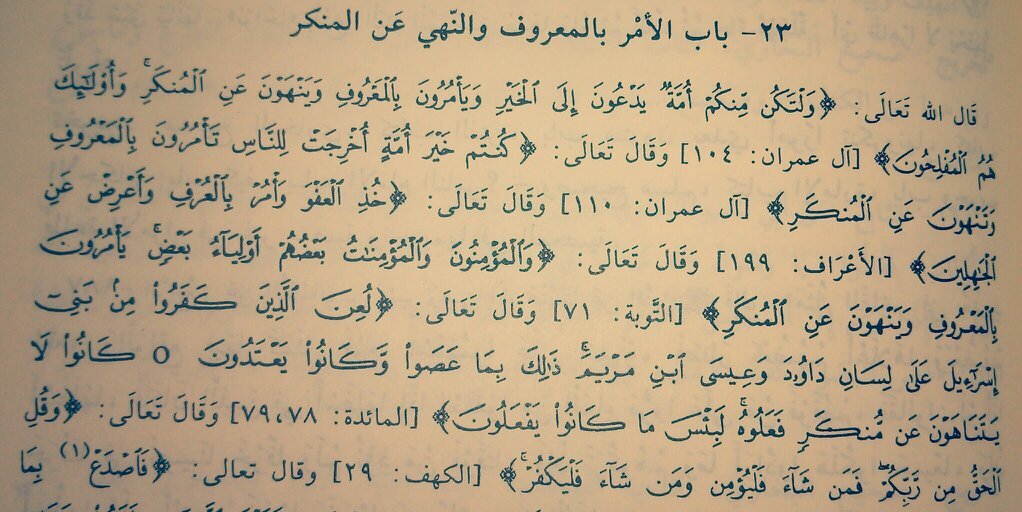 ٢٣- باب الأمْر بالمعروف والنّهي عَن المنكر
قَال الله تَعَالَى: ﴿وَلْتَكُن مِّنكُمْ أُمَّةٌ يَدْعُونَ إِلَى ٱلْخَيْرِ وَيَأْمُرُونَ بِٱلْمَعْرُوفِ وَيَنْهَوْنَ عَنِ ٱلْمُنكَرِۚ وَأُو۟لَٰٓئِكَ
هُمُ ٱلْمُفْلِحُونَ﴾ [آل عمران: ١٠٤] وَقَالَ تَعَالَى: ﴿كُنتُمْ خَيْرَ أُمَّةٍ أُخْرِجَتْ لِلنَّاسِ تَأْمُرُونَ بِٱلْمَعْرُوفِ
وَتَنْهَوْنَ عَنِ ٱلْمُنكَرِ﴾ [آل عمران: ١١٠] وَقَالَ تَعَالَى: ﴿خُذِ ٱلْعَفْوَ وَأْمُرْ بِٱلْعُرْفِ وَأَعْرِضْ عَنِ
ٱلْجَٰهِلِينَ﴾ [الأَعْرَاف: ١٩٩] وَقَالَ تَعَالَى: ﴿وَٱلْمُؤْمِنُونَ وَٱلْمُؤْمِنَٰتُ بَعْضُهُمْ أَوْلِيَآءُ بَعْضٍۚ يَأْمُرُونَ
بِٱلْمَعْرُوفِ وَيَنْهَوْنَ عَنِ ٱلْمُنكَرِ﴾ [التَّوبة: ٧١] وَقَالَ تَعَالَى: ﴿لُعِنَ ٱلَّذِينَ كَفَرُوا۟ مِنۢ بَنِىٓ
إِسْرَٰٓءِيلَ عَلَىٰ لِسَانِ دَاوُۥدَ وَعِيسَى ٱبْنِ مَرْيَمَۚ ذَٰلِكَ بِمَا عَصَوا۟ وَّكَانُوا۟ يَعْتَدُونَ ○ كَانُوا۟ لَا
يَتَنَاهَوْنَ عَن مُّنكَرٍ فَعَلُوهُۚ لَبِئْسَ مَا كَانُوا۟ يَفْعَلُونَ﴾ [المائدة: ٧٨،٧٩] وَقَالَ تَعَالَى: ﴿وَقُلِ
ٱلْحَقُّ مِن رَّبِّكُمْۖ فَمَن شَآءَ فَلْيُؤْمِن وَمَن شَآءَ فَلْيَكْفُرْۚ﴾ [الكهف: ٢٩] وقال تعالى: ﴿فَٱصْدَعْ(١) بِمَا